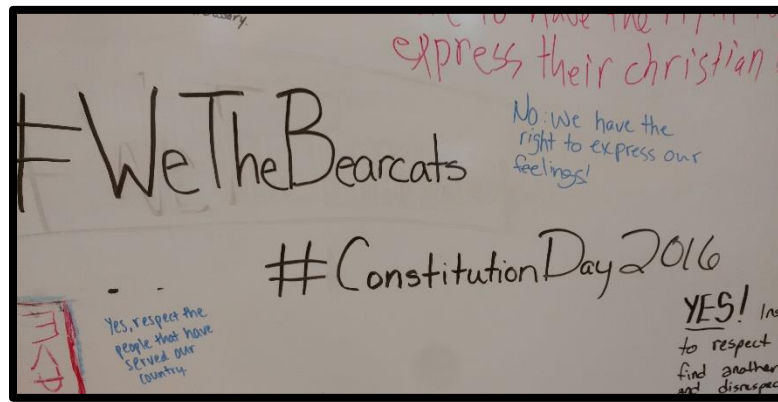 to have the right
express their christian
#WeTheBearcats
No: We have the
right to express our
feelings!
#ConstitutionDay2016
Yes, respect the
people that have
served our
country
YES! Ins
to respect
find another
and disrespec